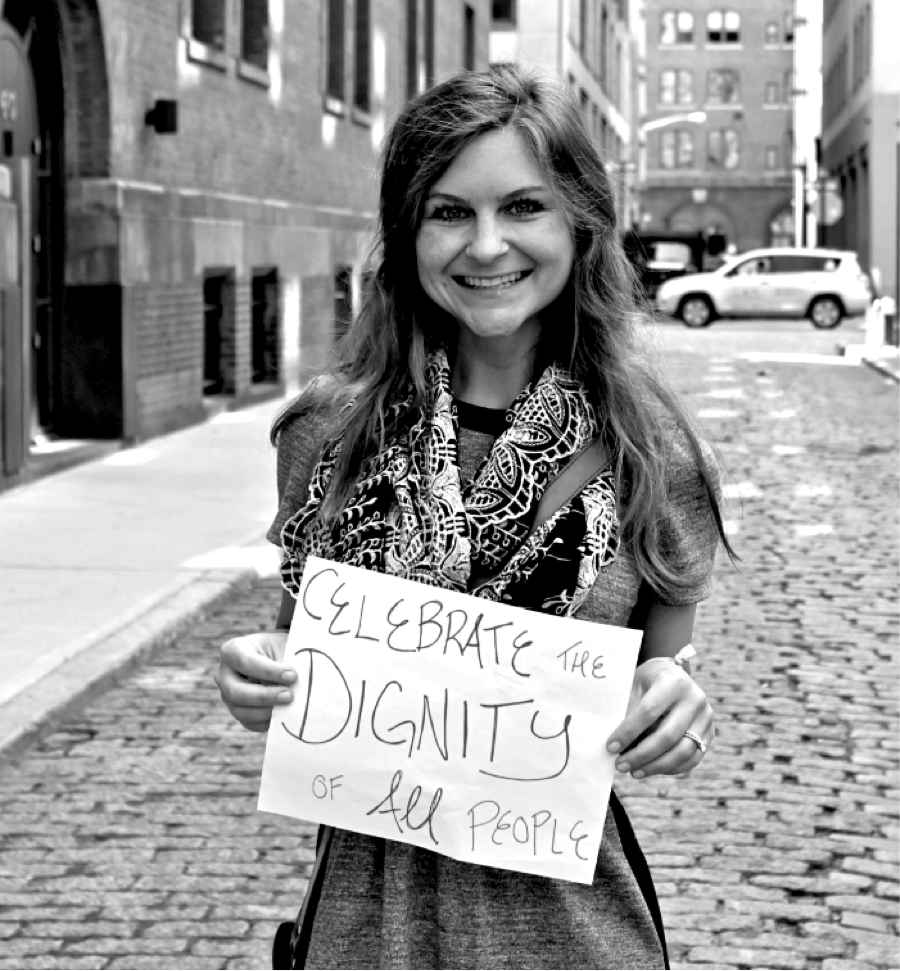 CELEBRATE THE
DIGNITY
OF All PEOPLE